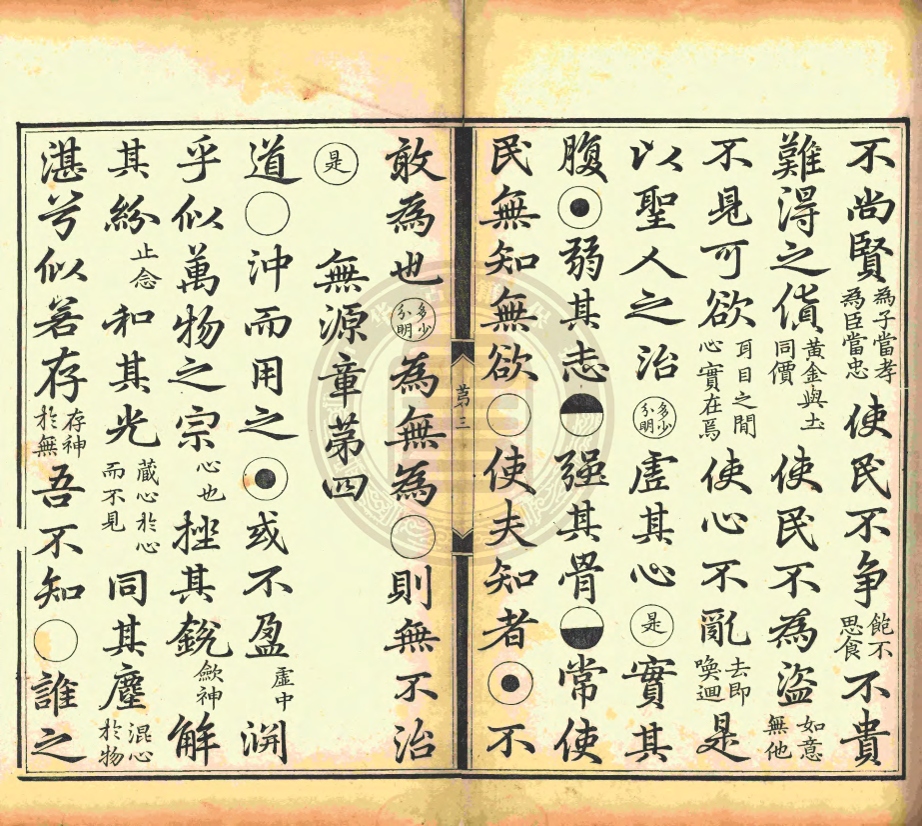 不尚賢為子當孝為臣當忠使民不爭飽不思食不貴
難得之貨黃金與土同價使民不為盜如意無他
不見可欲耳目之間心實在焉使心不亂去即喚迴是
以聖人之治多少分明虛其心是實其
腹弱其志強其骨常使
民無知無欲○使夫知者不
第三
敢為也多少分明為無為○則無不治
是
無源章第四
道○沖而用之或不盈虛中淵
乎似萬物之宗心也挫其銳歛神解
其紛止念和其光蔵心於心而不見同其塵混心於物
湛兮似若存存神於無吾不知○誰之